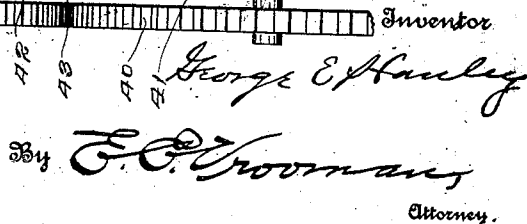 Inventor
42 43 40 41
George E Hanley
By E. E. Vrooman,
Attorney.